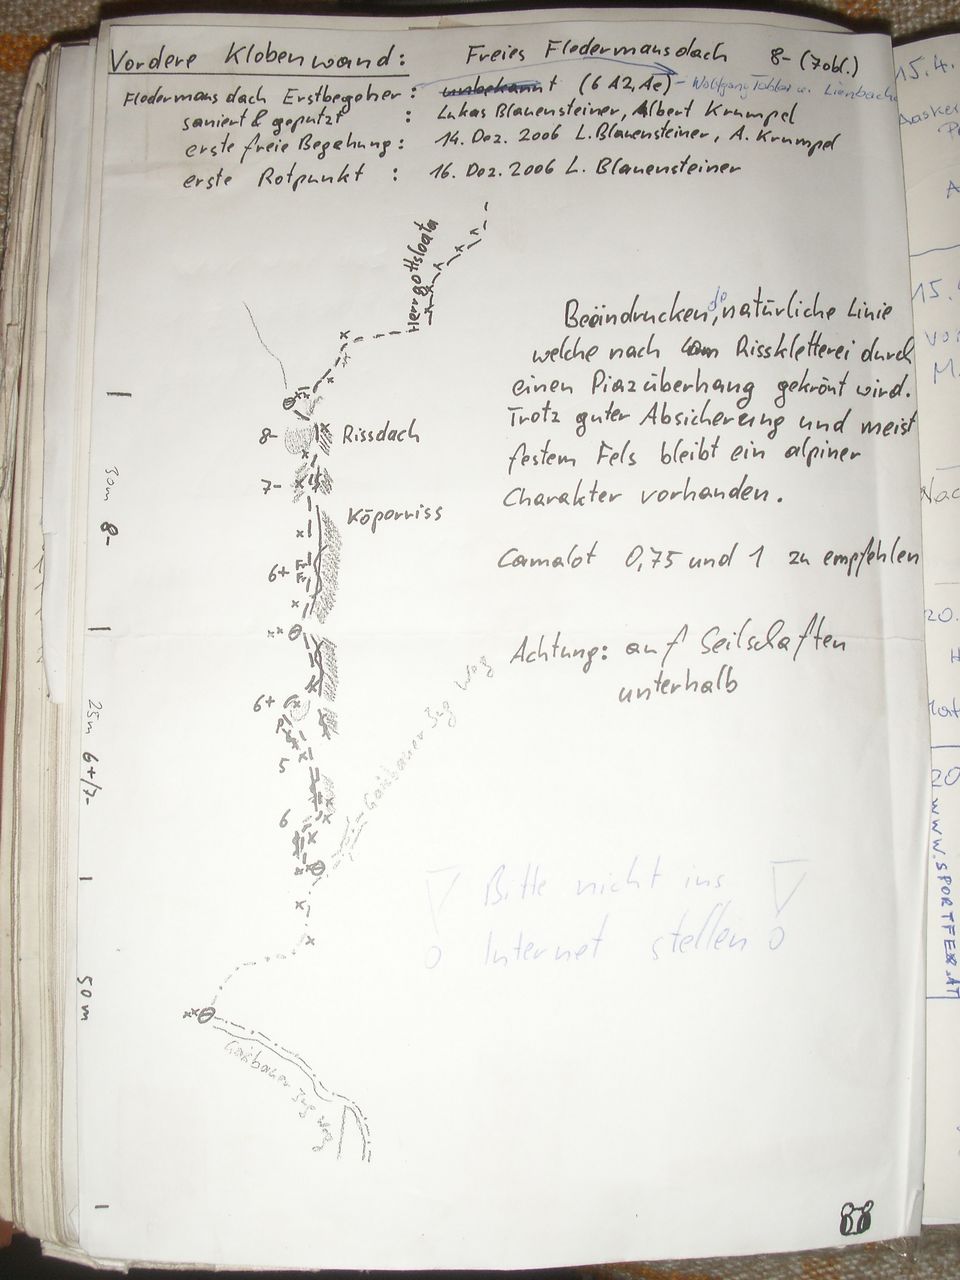 Vordere Klobenwand: Freies Fledermausdach 8- (7obl.)
Fledermausdach Erstbegeher: unbekannt (6 A2, Ae) - Wolfgang
saniert & geputzt : Lukas Blauensteiner, Albert Krumpel
erste freie Begehung: 14. Dez. 2006 L. Blauensteiner, A. Krumpel
erste Rotpunkt : 16. Dez. 2006 L. Blauensteiner
Herrgottsloata
Beeindruckende, natürliche Linie
welche nach Risskletterei durch
einen Piazüberhang gekrönt wird.
Trotz guter Absicherung und meist
festem Fels bleibt ein alpiner
Charakter vorhanden.
Camalot 0,75 und 1 zu empfehlen
Achtung: auf Seilschaften
unterhalb
8- Rissdach
7-
Köperriss
6+
6+
5
6
30m 8-
25m 6+/7-
50m
Gaisbauer Weg
Gaisbauer Weg
Bitte nicht ins
Internet stellen
88
15.4.
15.
20.
20
WWW.SPORTFEX.AT